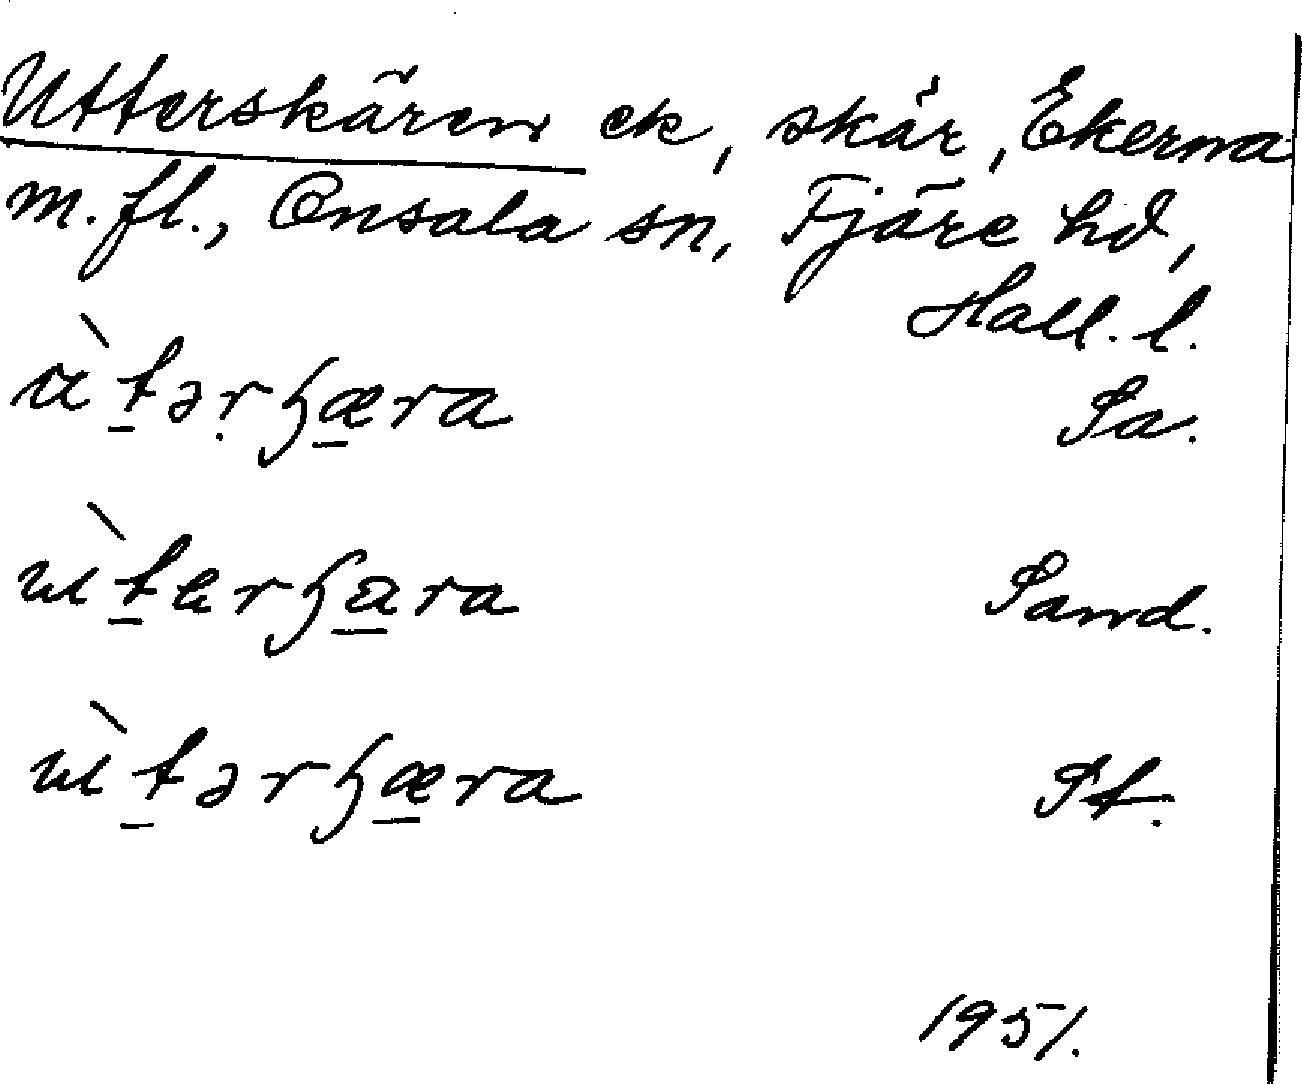 Utterskären ek, skär, Ekerna
m.fl., Onsala sn, Fjäre hd,
Hall. l.
ùtərɧæra Sa.
ùtarɧara Sand.
ùtərɧæra St.
1951.